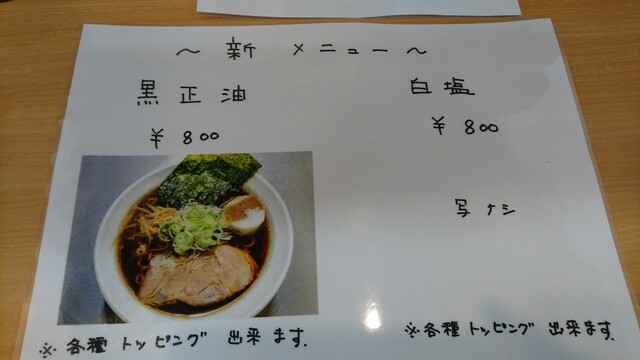 ～ 新 メニュー ～
黒正油
¥800
※各種トッピング出来ます.
白塩
¥800
写ナシ
※各種トッピング出来ます.